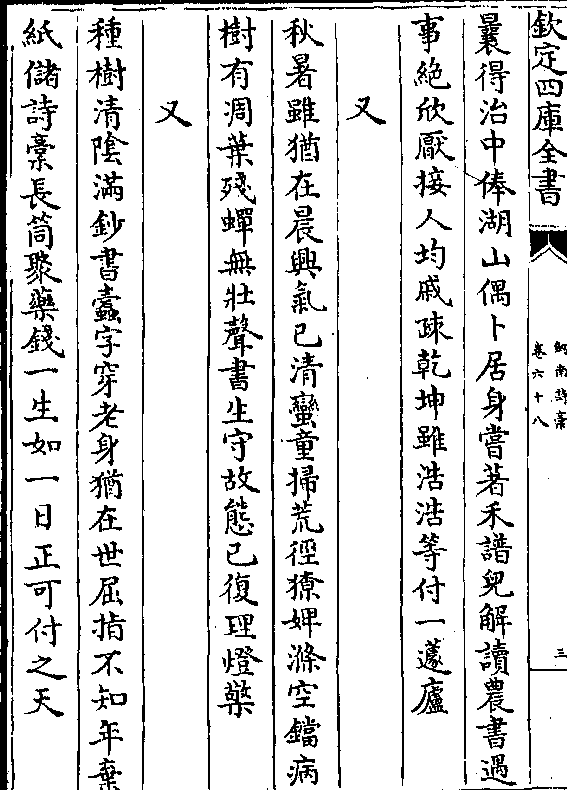 欽定四庫全書
劒南詩稾
卷六十八
三
曩得治中俸湖山偶卜居身嘗著禾譜兒解讀農書遇
事絶欣厭接人均戚疎乾坤雖浩浩等付一蘧廬
又
秋暑雖猶在晨興氣已清蠻童掃荒徑獠婢滌空鐺病
樹有凋葉殘蟬無壯聲書生守故態已復理燈檠
又
種樹清陰滿鈔書蠧字穿老身猶在世屈指不知年棄
紙儲詩稾長筒聚藥錢一生如一日正可付之天